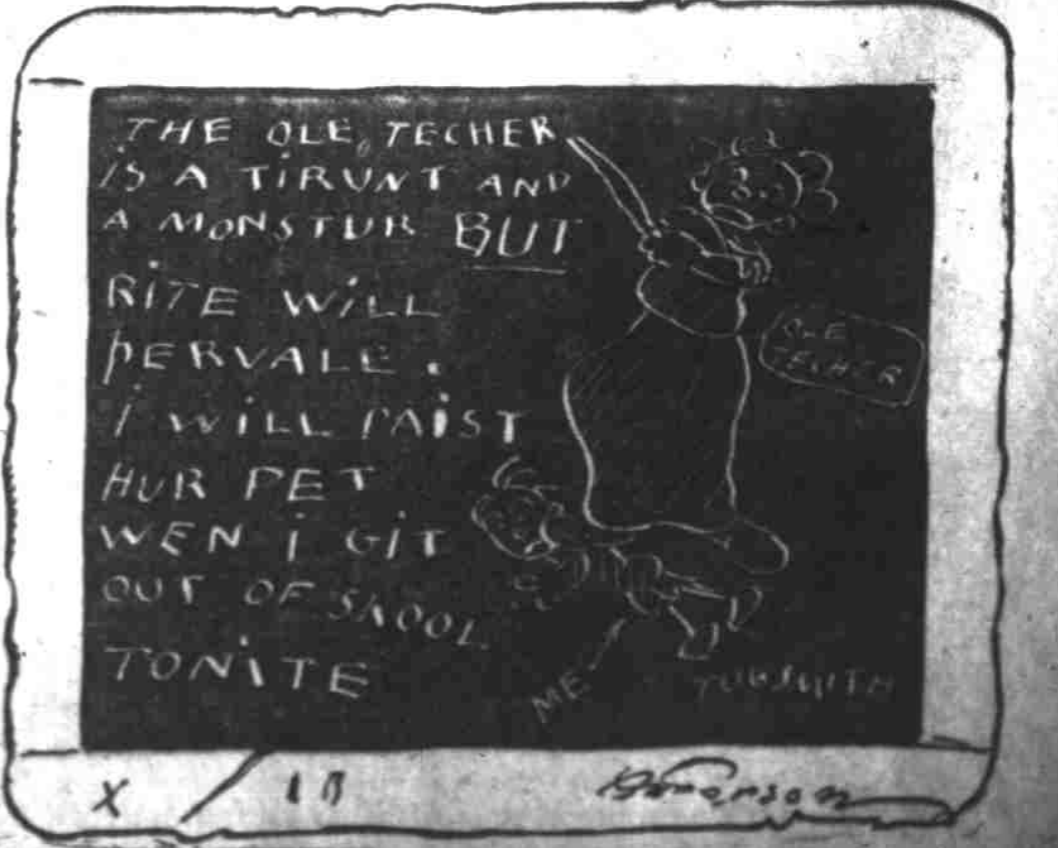 THE OLE TECHER
iS A TiRUNT AND
A MONSTUR BUT
RiTE WiLL
PERVALE.
i WiLL PAiST
HUR PET
WEN i GiT
OUT OF SKOOL
TONiTE
OLE
TECHER
ME
TUBSMITH
X